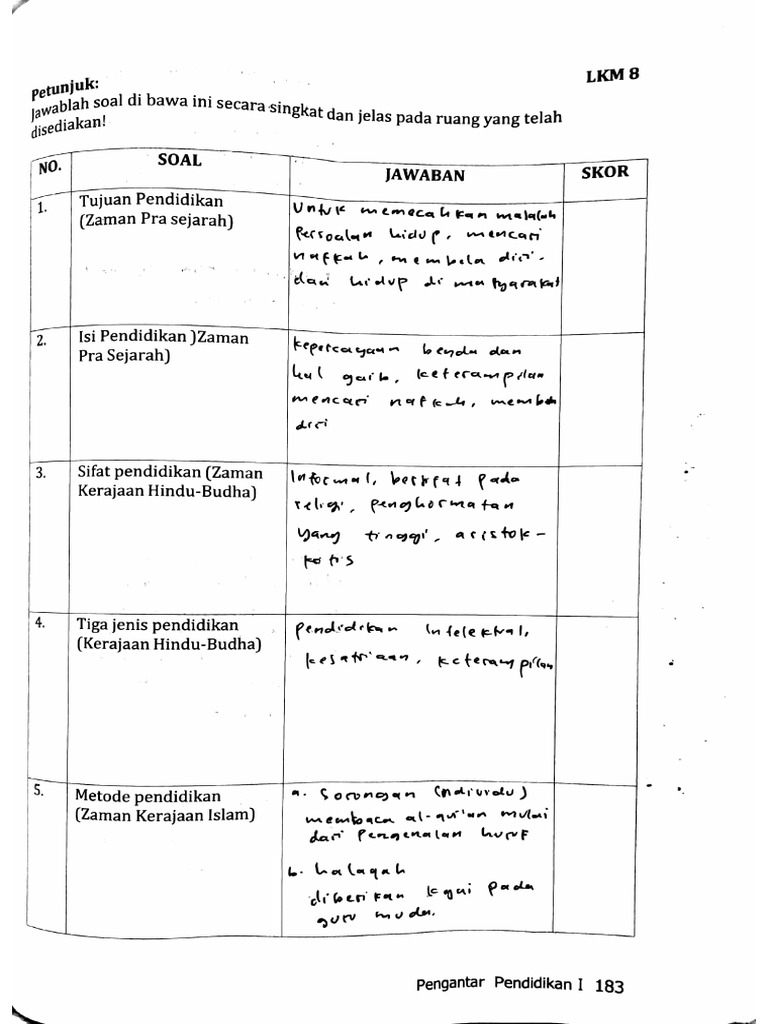 LKM 8
Petunjuk:
Jawablah soal di bawa ini secara singkat dan jelas pada ruang yang telah
disediakan!
NO.
SOAL
JAWABAN
SKOR
1.
Tujuan Pendidikan
(Zaman Pra sejarah)
Untuk memecahkan malalah
Persoalan hidup, mencari
nafkah, membela diri.
dan hidup di masyarakat
2.
Isi Pendidikan )Zaman
Pra Sejarah)
kepercayaan benda dan
hal gaib, keterampilan
mencari nafkah, membela
diri
3.
Sifat pendidikan (Zaman
Kerajaan Hindu-Budha)
Informal, bersifat pada
religi, penghormatan
yang tinggi, aristok-
ratis
4.
Tiga jenis pendidikan
(Kerajaan Hindu-Budha)
Pendidikan Intelektual,
kesatriaan, keterampilan
5.
Metode pendidikan
(Zaman Kerajaan Islam)
a. Sorongan (Individu)
membaca al-qur'an mulai
dari Pengenalan huruf
b. halaqah
diberikan kyai pada
guru muda.
Pengantar Pendidikan I 183